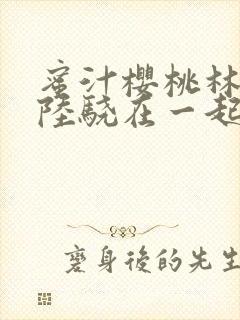 蜜汁櫻桃林
陸驍在一起
變身後的先生